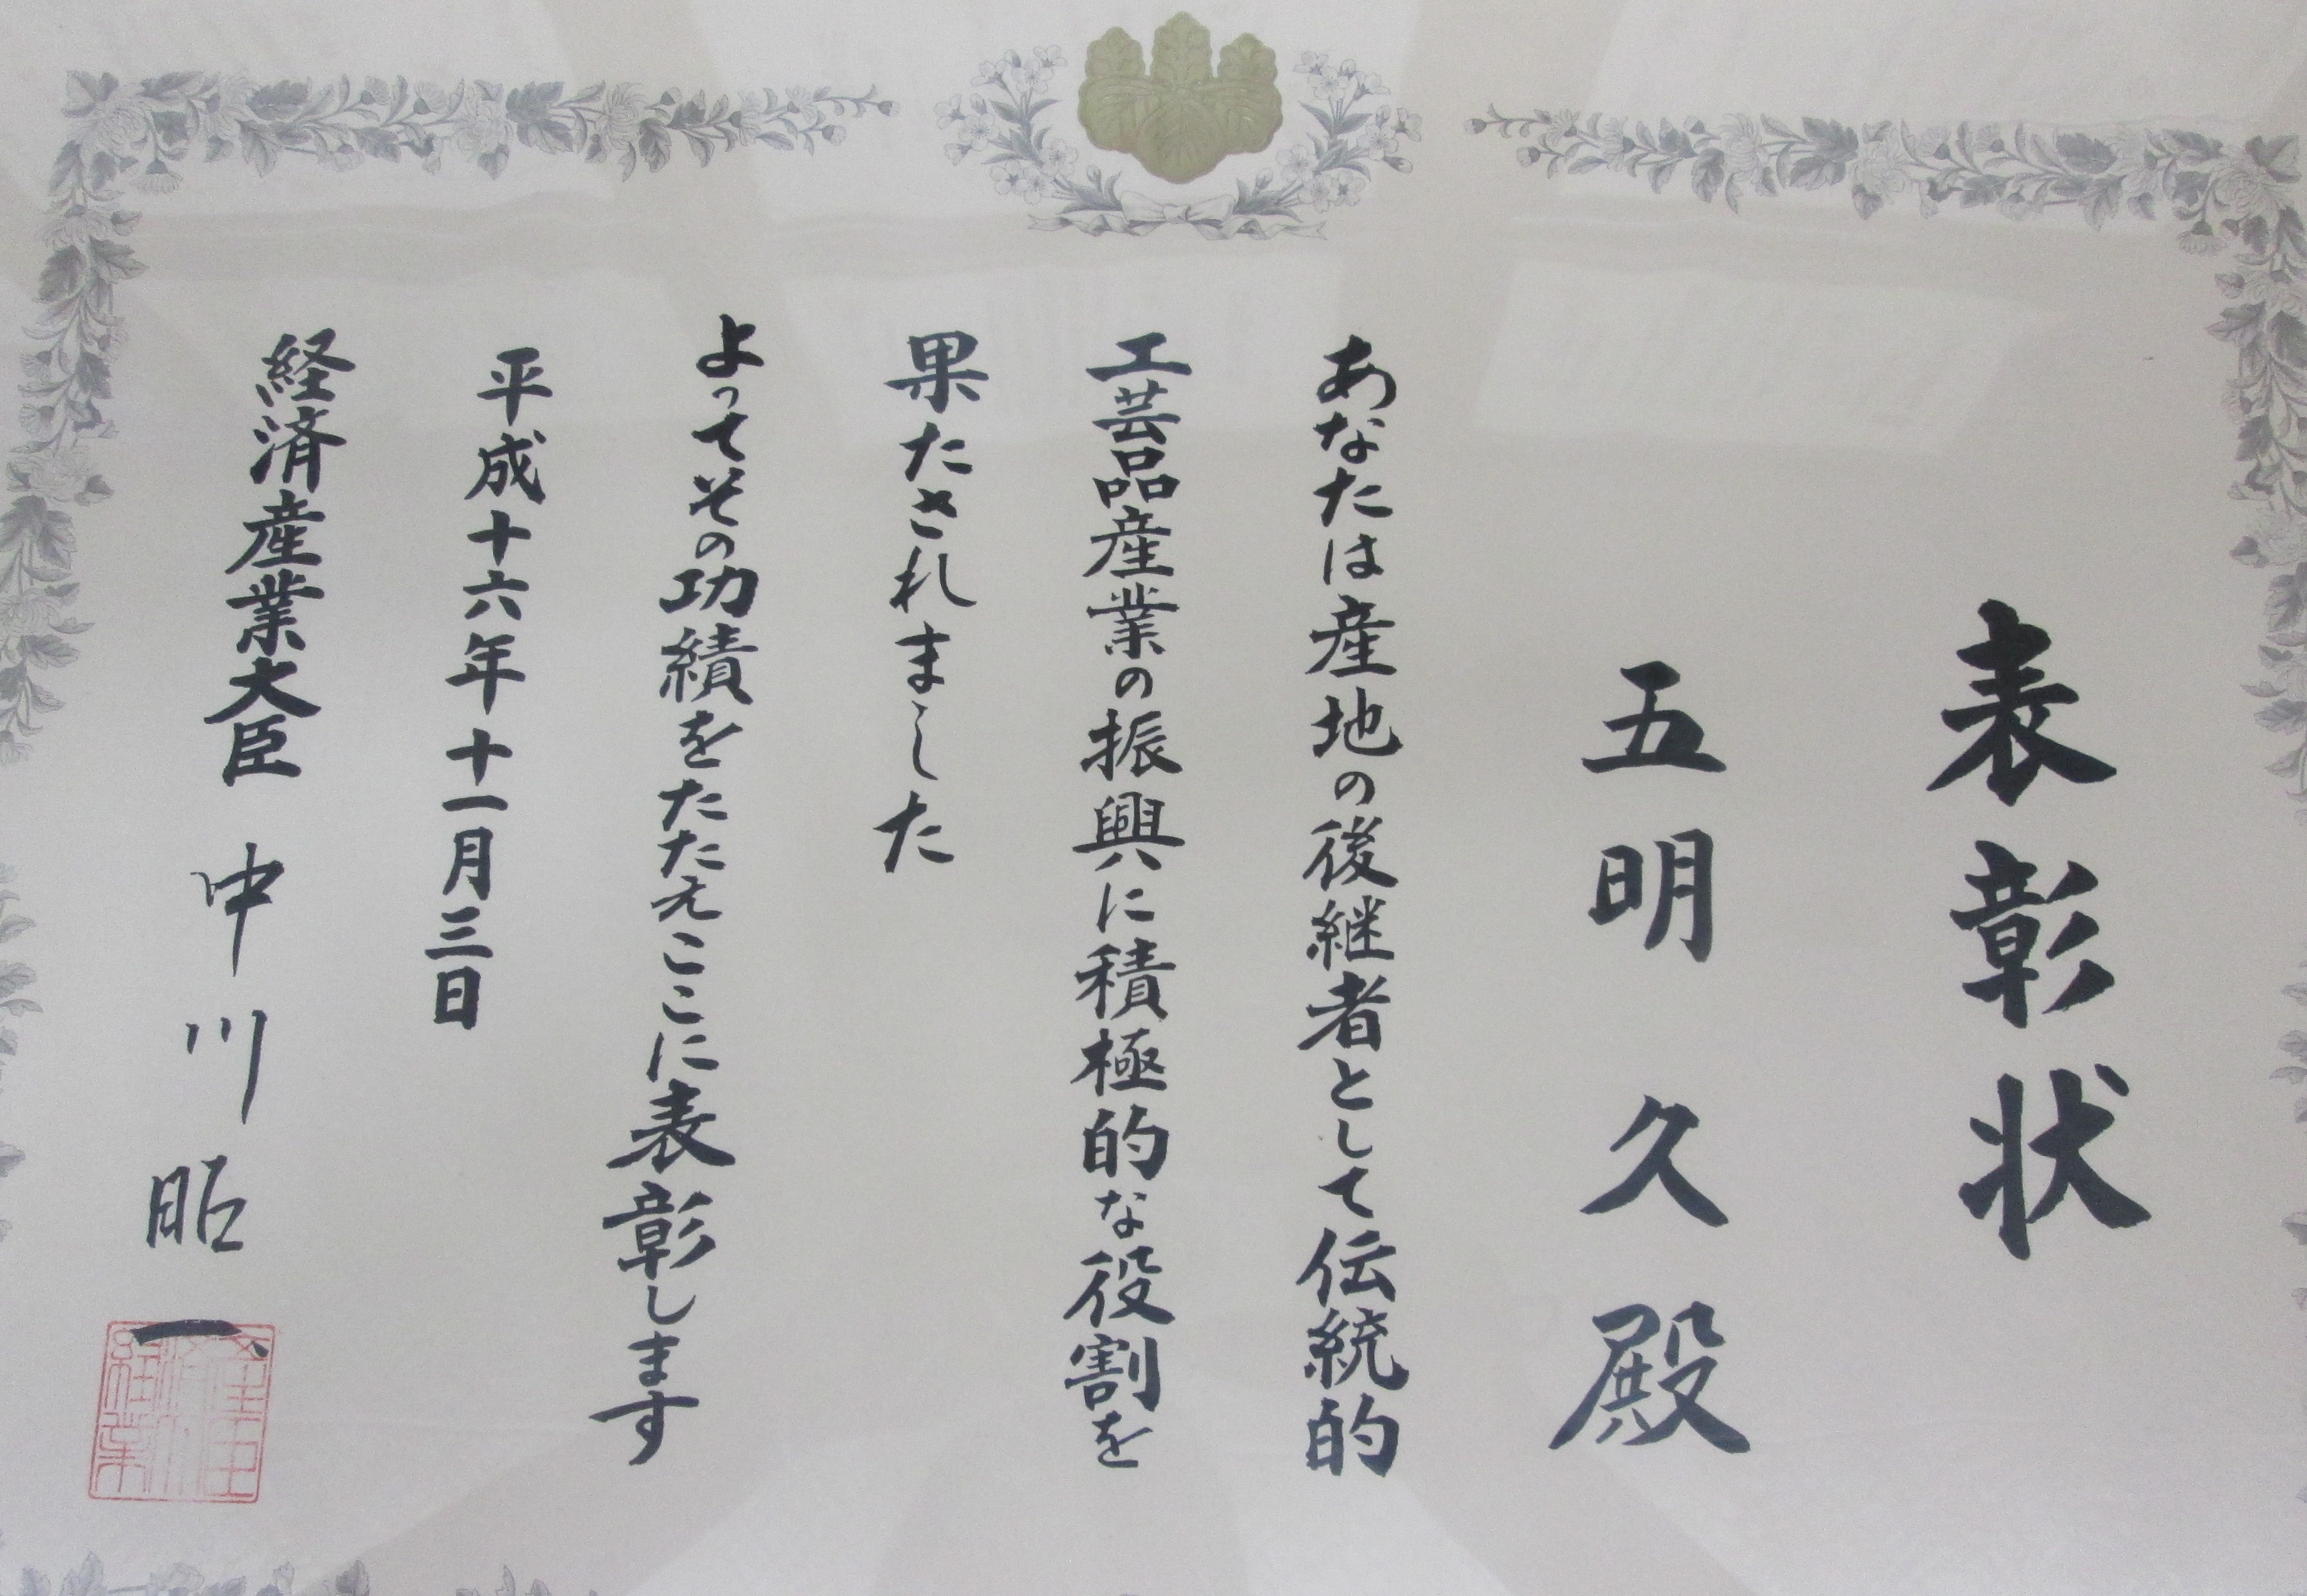 表彰状
五明 久 殿
あなたは産地の後継者として伝統的
工芸品産業の振興に積極的な役割を
果たされました
よってその功績をたたえここに表彰します
平成十六年十一月三日
経済産業大臣 中川昭一